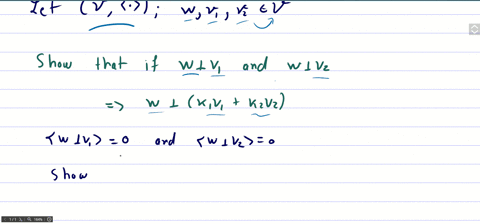 Let (V, ⟨·⟩); w, v₁, v₂ ∈ V
Show that if w⊥v₁ and w⊥v₂
=> w ⊥ (k₁v₁ + k₂v₂)
⟨w⊥v₁⟩ = 0 and ⟨w⊥v₂⟩ = 0
Show